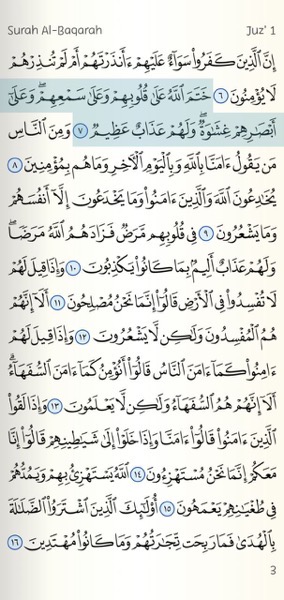 Surah Al-Baqarah Juz' 1
إِنَّ ٱلَّذِينَ كَفَرُوا۟ سَوَآءٌ عَلَيْهِمْ ءَأَنذَرْتَهُمْ أَمْ لَمْ تُنذِرْهُمْ
لَا يُؤْمِنُونَ ٦ خَتَمَ ٱللَّهُ عَلَىٰ قُلُوبِهِمْ وَعَلَىٰ سَمْعِهِمْ ۖ وَعَلَىٰٓ
أَبْصَـٰرِهِمْ غِشَـٰوَةٌ ۖ وَلَهُمْ عَذَابٌ عَظِيمٌ ٧ وَمِنَ ٱلنَّاسِ
مَن يَقُولُ ءَامَنَّا بِٱللَّهِ وَبِٱلْيَوْمِ ٱلْـَٔاخِرِ وَمَا هُم بِمُؤْمِنِينَ ٨
يُخَـٰدِعُونَ ٱللَّهَ وَٱلَّذِينَ ءَامَنُوا۟ وَمَا يَخْدَعُونَ إِلَّآ أَنفُسَهُمْ
وَمَا يَشْعُرُونَ ٩ فِى قُلُوبِهِم مَّرَضٌ فَزَادَهُمُ ٱللَّهُ مَرَضًا ۖ
وَلَهُمْ عَذَابٌ أَلِيمٌۢ بِمَا كَانُوا۟ يَكْذِبُونَ ١٠ وَإِذَا قِيلَ لَهُمْ
لَا تُفْسِدُوا۟ فِى ٱلْأَرْضِ قَالُوٓا۟ إِنَّمَا نَحْنُ مُصْلِحُونَ ١١ أَلَآ إِنَّهُمْ
هُمُ ٱلْمُفْسِدُونَ وَلَـٰكِن لَّا يَشْعُرُونَ ١٢ وَإِذَا قِيلَ لَهُمْ
ءَامِنُوا۟ كَمَآ ءَامَنَ ٱلنَّاسُ قَالُوٓا۟ أَنُؤْمِنُ كَمَآ ءَامَنَ ٱلسُّفَهَآءُ ۗ
أَلَآ إِنَّهُمْ هُمُ ٱلسُّفَهَآءُ وَلَـٰكِن لَّا يَعْلَمُونَ ١٣ وَإِذَا لَقُوا۟
ٱلَّذِينَ ءَامَنُوا۟ قَالُوٓا۟ ءَامَنَّا وَإِذَا خَلَوْا۟ إِلَىٰ شَيَـٰطِينِهِمْ قَالُوٓا۟ إِنَّا
مَعَكُمْ إِنَّمَا نَحْنُ مُسْتَهْزِءُونَ ١٤ ٱللَّهُ يَسْتَهْزِئُ بِهِمْ وَيَمُدُّهُمْ
فِى طُغْيَـٰنِهِمْ يَعْمَهُونَ ١٥ أُو۟لَـٰٓئِكَ ٱلَّذِينَ ٱشْتَرَوُا۟ ٱلضَّلَـٰلَةَ
بِٱلْهُدَىٰ فَمَا رَبِحَت تِّجَـٰرَتُهُمْ وَمَا كَانُوا۟ مُهْتَدِينَ ١٦
3